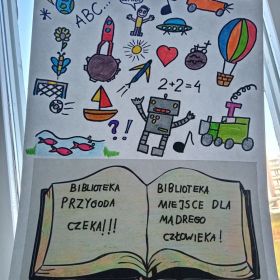 ABC...
2+2=4
?!
BIBLIOTEKA
PRZYGODA
CZEKA!!!
BIBLIOTEKA
MIEJSCE DLA
MĄDREGO
CZŁOWIEKA!